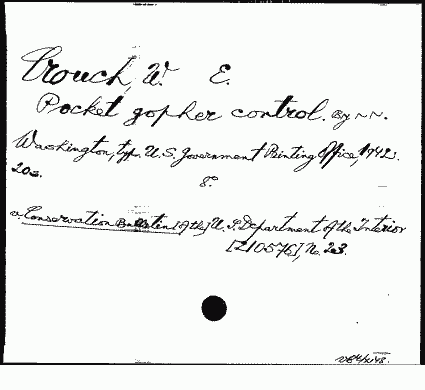 Crouch, W. E.
Pocket gopher control. By ~ ~.
Washington, typ. U.S. Government Printing Office, 1942.
20s. 8°.
a Conservation Bulletin [of the] U.S. Department of the Interior
[210576], No. 23.